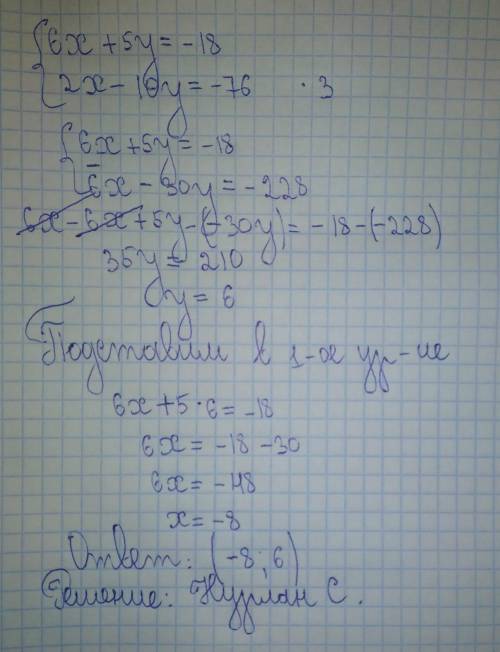 6x + 5y = -18
2x - 10y = -76 · 3
6x + 5y = -18
6x - 30y = -228
6x - 6x + 5y - (-30y) = -18 - (-228)
35y = 210
y = 6
Подставим в 1-ое ур-ие
6x + 5 · 6 = -18
6x = -18 - 30
6x = -48
x = -8
Ответ: (-8; 6)
Решение: Нурлан С.